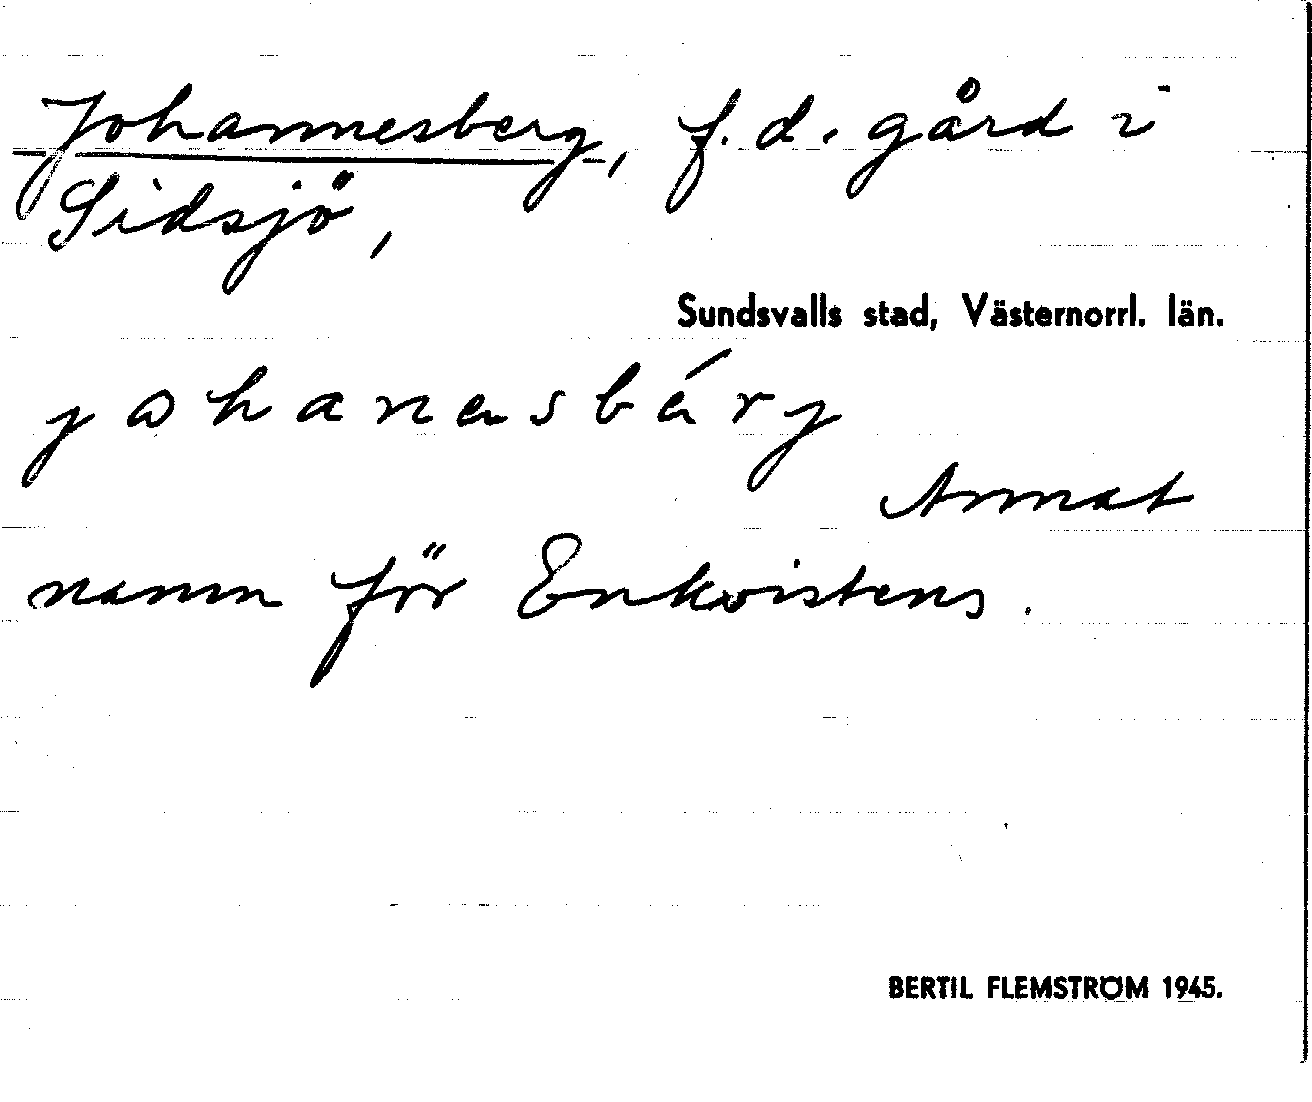 Johannesberg, f.d. gård i
Sidsjö,
Sundsvalls stad, Västernorrl. län.
johanesbérj
Annat
namn för Enkvistens.
BERTIL FLEMSTRÖM 1945.